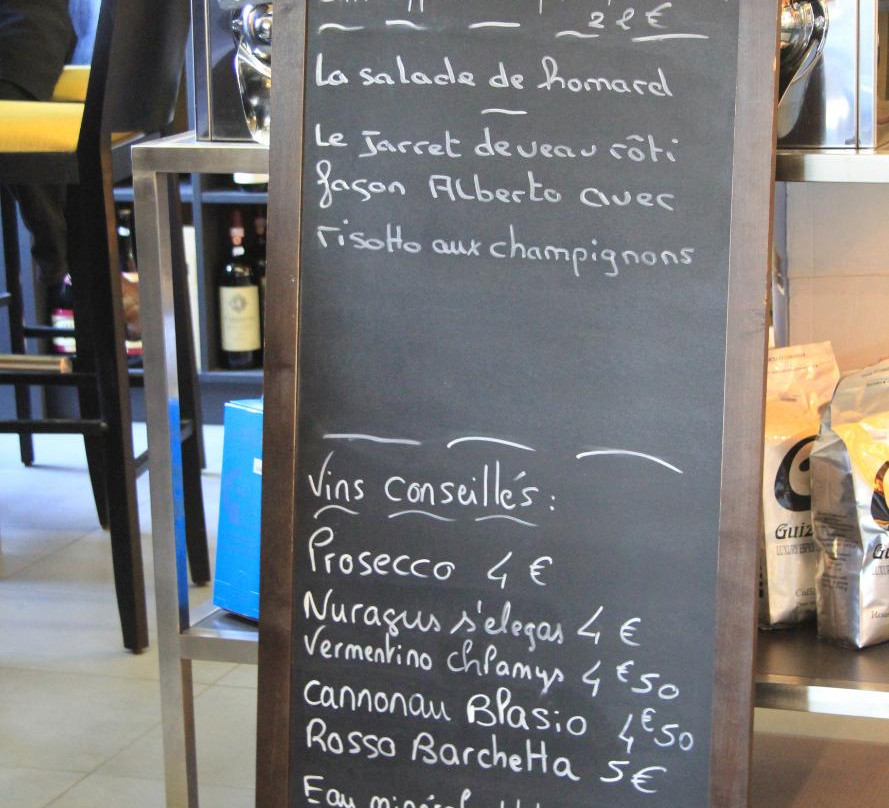 2 2 €
La salade de homard
Le Jarret de veau rôti
façon Alberto avec
risotto aux champignons
Vins conseillés :
Prosecco 4 €
Nuragus s'elegas 4 €
Vermentino chlamys 4 € 50
Cannonau Blasio 4 € 50
Rosso Barchetta 5 €
Eau